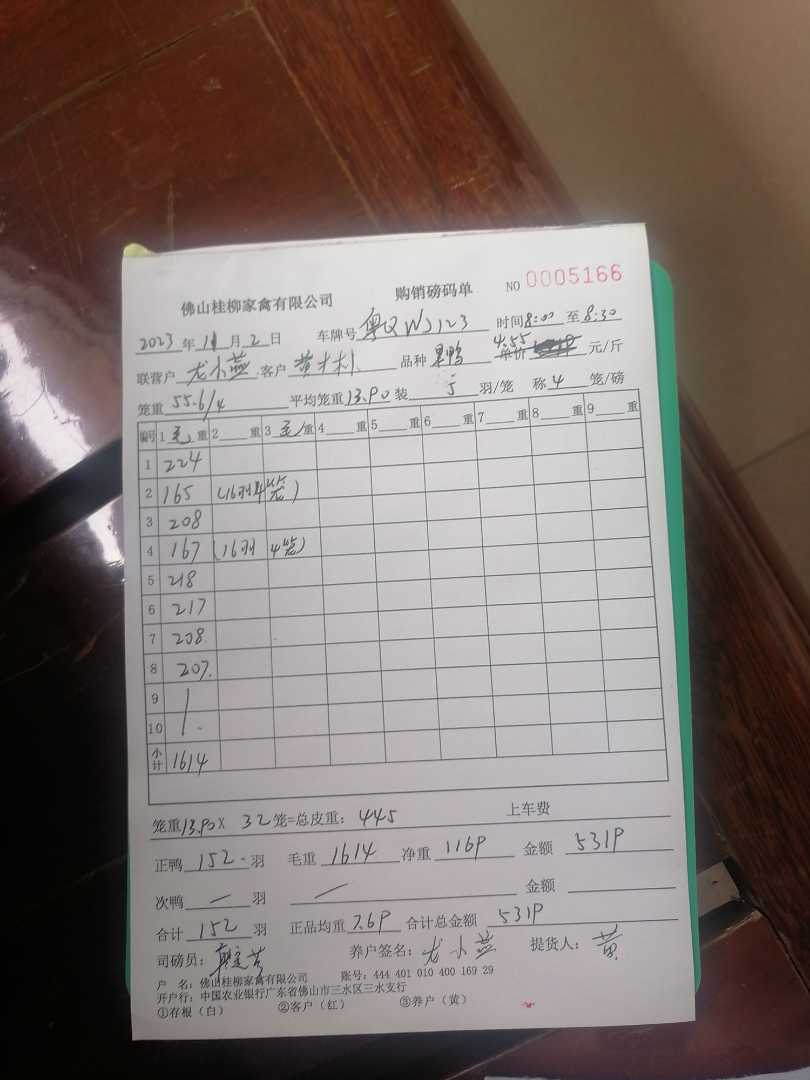 佛山桂柳家禽有限公司 购销磅码单 NO 0005166
2023年11月2日 车牌号 粤QWJ123 时间8:00至8:30
联营户 龙小燕 客户 黄木朴 品种 果鸭 单价 4.55 元/斤
笼重 55.6/4 平均笼重13.90装 5 羽/笼 称4笼/磅
编号 1毛重 2 重 3毛重 4 重 5 重 6 重 7 重 8 重 9 重
1 224
2 165 (16羽4笼)
3 208
4 167 (16羽 4笼)
5 218
6 217
7 208.
8 207.
9
10
小计 1614
笼重13.90X 32笼=总皮重: 445 上车费
正鸭 152 羽 毛重 1614 净重 1169 金额 5319
次鸭 — 羽 金额
合计 152 羽 正品均重 7.69 合计总金额 5319
司磅员: 养户签名: 龙小燕 提货人: 黄
户 名: 佛山桂柳家禽有限公司 账号: 444 401 010 400 169 29
开户行: 中国农业银行广东省佛山市三水区三水支行
①存根(白) ②客户(红) ③养户(黄)